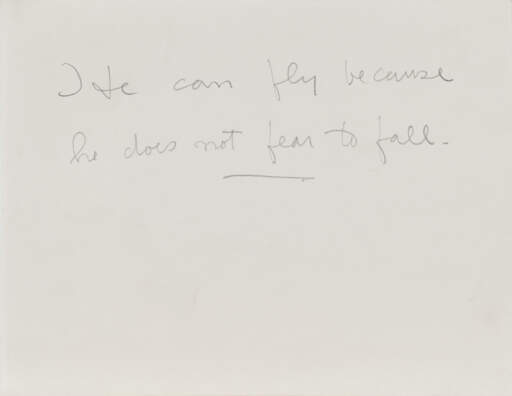 He can fly because
he does not fear to fall.